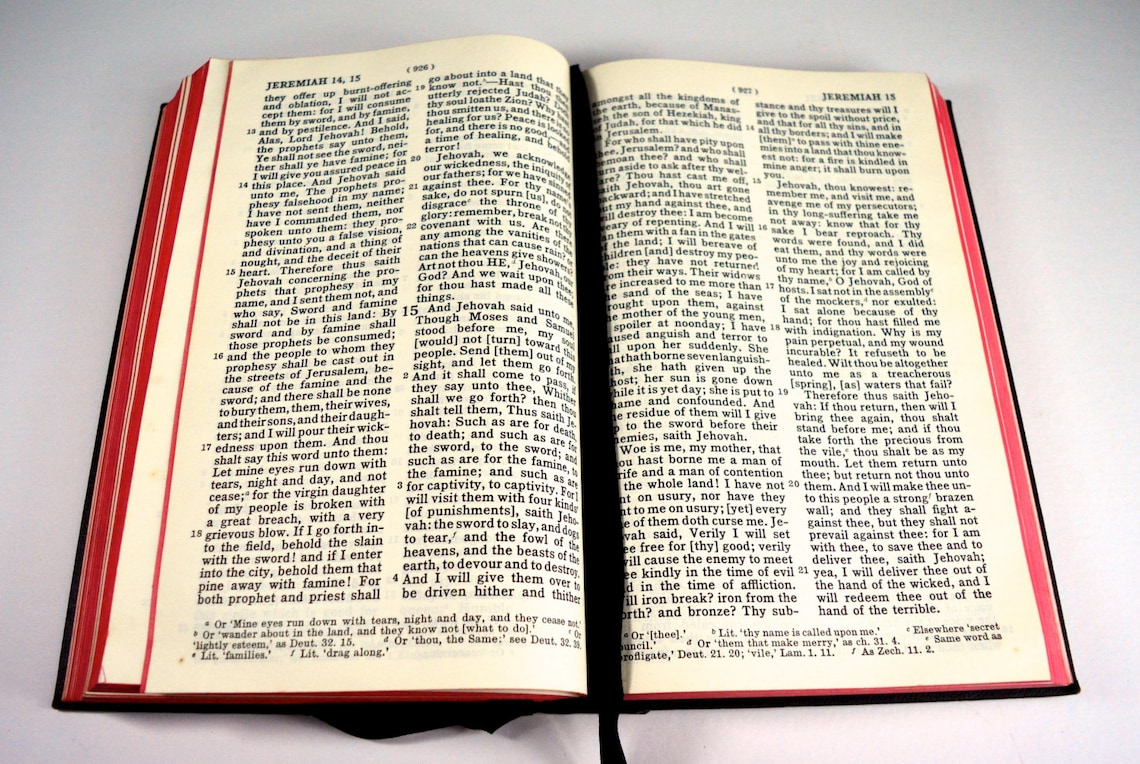 JEREMIAH 14, 15
( 926 )
they offer up burnt-offering
and oblation, I will not ac-
cept them: for I will consume
them by sword, and by famine,
13 and by pestilence. And I said,
Alas, Lord Jehovah! Behold,
the prophets say unto them,
Ye shall not see the sword, nei-
ther shall ye have famine; for
I will give you assured peace in
14 this place. And Jehovah said
unto me, The prophets pro-
phesy falsehood in my name;
I have not sent them, neither
have I commanded them, nor
spoken unto them: they pro-
phesy unto you a false vision,
and divination, and a thing of
nought, and the deceit of their
15 heart. Therefore thus saith
Jehovah concerning the pro-
phets that prophesy in my
name, and I sent them not, and
who say, Sword and famine
shall not be in this land: By
sword and by famine shall
those prophets be consumed;
16 and the people to whom they
prophesy shall be cast out in
the streets of Jerusalem, be-
cause of the famine and the
sword; and there shall be none
to bury them, them, their wives,
and their sons, and their daugh-
ters; and I will pour their wick-
17 edness upon them. And thou
shalt say this word unto them:
Let mine eyes run down with
tears, night and day, and not
cease;a for the virgin daughter
of my people is broken with
a great breach, with a very
18 grievous blow. If I go forth in-
to the field, behold the slain
with the sword! and if I enter
into the city, behold them that
pine away with famine! For
both prophet and priest shall
go about into a land that they
19 know not.b—Hast thou
utterly rejected Judah? Doth
thy soul loathe Zion? Why hast
thou smitten us, and there is no
healing for us? Peace is looked
for, and there is no good,
a time of healing, and behold
terror!
20 Jehovah, we acknowledge
our wickedness, the iniquity of
our fathers; for we have sinned
21 against thee. For thy name's
sake, do not spurn [us], do not
disgracec the throne of thy
glory: remember, break not thy
22 covenant with us. Are there
any among the vanities of the
nations that can cause rain? or
can the heavens give showers?
Art not thou HE,d Jehovah, our
God? And we wait upon thee;
for thou hast made all these
things.
15 And Jehovah said unto me,
Though Moses and Samuel
stood before me, my soul
[would] not [turn] toward this
people. Send [them] out of my
sight, and let them go forth.
2 And it shall come to pass, if
they say unto thee, Whither
shall we go forth? then thou
shalt tell them, Thus saith Je-
hovah: Such as are for death,
to death; and such as are for
the sword, to the sword; and
such as are for the famine, to
the famine; and such as are
3 for captivity, to captivity. For I
will visit them with four kindse
[of punishments], saith Jeho-
vah: the sword to slay, and dogs
to tear,f and the fowl of the
heavens, and the beasts of the
earth, to devour and to destroy.
4 And I will give them over to
be driven hither and thither
a Or 'Mine eyes run down with tears, night and day, and they cease not.'
b Or 'wander about in the land, and they know not [what to do].' c Or
'lightly esteem,' as Deut. 32. 15. d Or 'thou, the Same:' see Deut. 32. 39.
e Lit. 'families.' f Lit. 'drag along.'
( 927 )
JEREMIAH 15
amongst all the kingdoms of
the earth, because of Manas-
the son of Hezekiah, king
Judah, for that which he did
Jerusalem.
For who shall have pity upon
thee, Jerusalem? and who shall
bemoan thee? and who shall
turn aside to ask after thy wel-
fare? Thou hast cast me off,
saith Jehovah, thou art gone
backward; and I have stretched
out my hand against thee, and
will destroy thee: I am become
weary of repenting. And I will
fan them with a fan in the gates
of the land; I will bereave of
children [and] destroy my peo-
ple: they have not returned
from their ways. Their widows
are increased to me more than
the sand of the seas; I have
brought upon them, against
the mother of the young men,
spoiler at noonday; I have
caused anguish and terror to
fall upon her suddenly. She
that hath borne seven languish-
eth, she hath given up the
ghost; her sun is gone down
while it is yet day; she is put to
shame and confounded. And
the residue of them will I give
up to the sword before their
enemies, saith Jehovah.
Woe is me, my mother, that
thou hast borne me a man of
strife and a man of contention
the whole land! I have not
lent on usury, nor have they
lent to me on usury; [yet] every
one of them doth curse me. Je-
hovah said, Verily I will set
thee free for [thy] good; verily
will cause the enemy to meet
thee kindly in the time of evil
and in the time of affliction.
Will iron break? iron from the
north? and bronze? Thy sub-
14 stance and thy treasures will I
give to the spoil without price,
and that for all thy sins, and in
all thy borders; and I will make
[them]a to pass with thine ene-
mies into a land that thou know-
est not: for a fire is kindled in
mine anger; it shall burn upon
you.
15 Jehovah, thou knowest: re-
member me, and visit me, and
avenge me of my persecutors;
in thy long-suffering take me
not away: know that for thy
16 sake I bear reproach. Thy
words were found, and I did
eat them, and thy words were
unto me the joy and rejoicing
of my heart; for I am called by
thy name,b O Jehovah, God of
17 hosts. I sat not in the assemblyc
of the mockers,d nor exulted:
I sat alone because of thy
hand; for thou hast filled me
18 with indignation. Why is my
pain perpetual, and my wound
incurable? It refuseth to be
healed. Wilt thou be altogether
unto me as a treacherous
[spring], [as] waters that fail?
19 Therefore thus saith Jeho-
vah: If thou return, then will I
bring thee again, thou shalt
stand before me; and if thou
take forth the precious from
the vile,e thou shalt be as my
mouth. Let them return unto
thee; but return not thou unto
20 them. And I will make thee un-
to this people a strongf brazen
wall; and they shall fight a-
gainst thee, but they shall not
prevail against thee: for I am
with thee, to save thee and to
deliver thee, saith Jehovah;
21 yea, I will deliver thee out of
the hand of the wicked, and I
will redeem thee out of the
hand of the terrible.
a Or '[thee].' b Lit. 'thy name is called upon me.' c Elsewhere 'secret
council.' d Or 'them that make merry,' as ch. 31. 4. e Same word as
'profligate,' Deut. 21. 20; 'vile,' Lam. 1. 11. f As Zech. 11. 2.